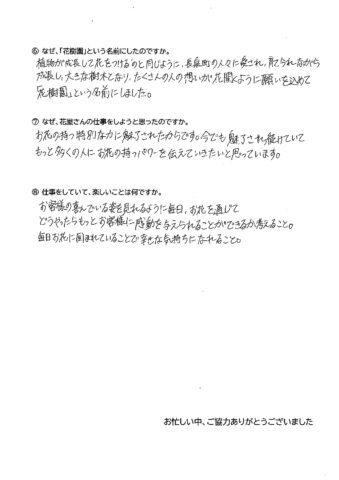 ⑥ なぜ、「花樹園」という名前にしたのですか。
植物が成長して花をつけるのと同じように、長泉町の人々に愛され、育てられながら
成長し、大きな樹木となり、たくさんの人の想いが花開くように願いを込めて
「花樹園」という名前にしました。
⑦ なぜ、花屋さんの仕事をしようと思ったのですか。
お花の持つ特別な力に魅了されたからです。今でも魅了され続けていて
もっと多くの人にお花の持つパワーを伝えていきたいと思っています。
⑧ 仕事をしていて、楽しいことは何ですか。
お客様の喜んでいる姿を見れるように毎日、お花を通じて
どうやったらもっとお客様に感動を与えられることができるか考えること。
毎日お花に囲まれていることで幸せな気持ちになれること。
お忙しい中、ご協力ありがとうございました